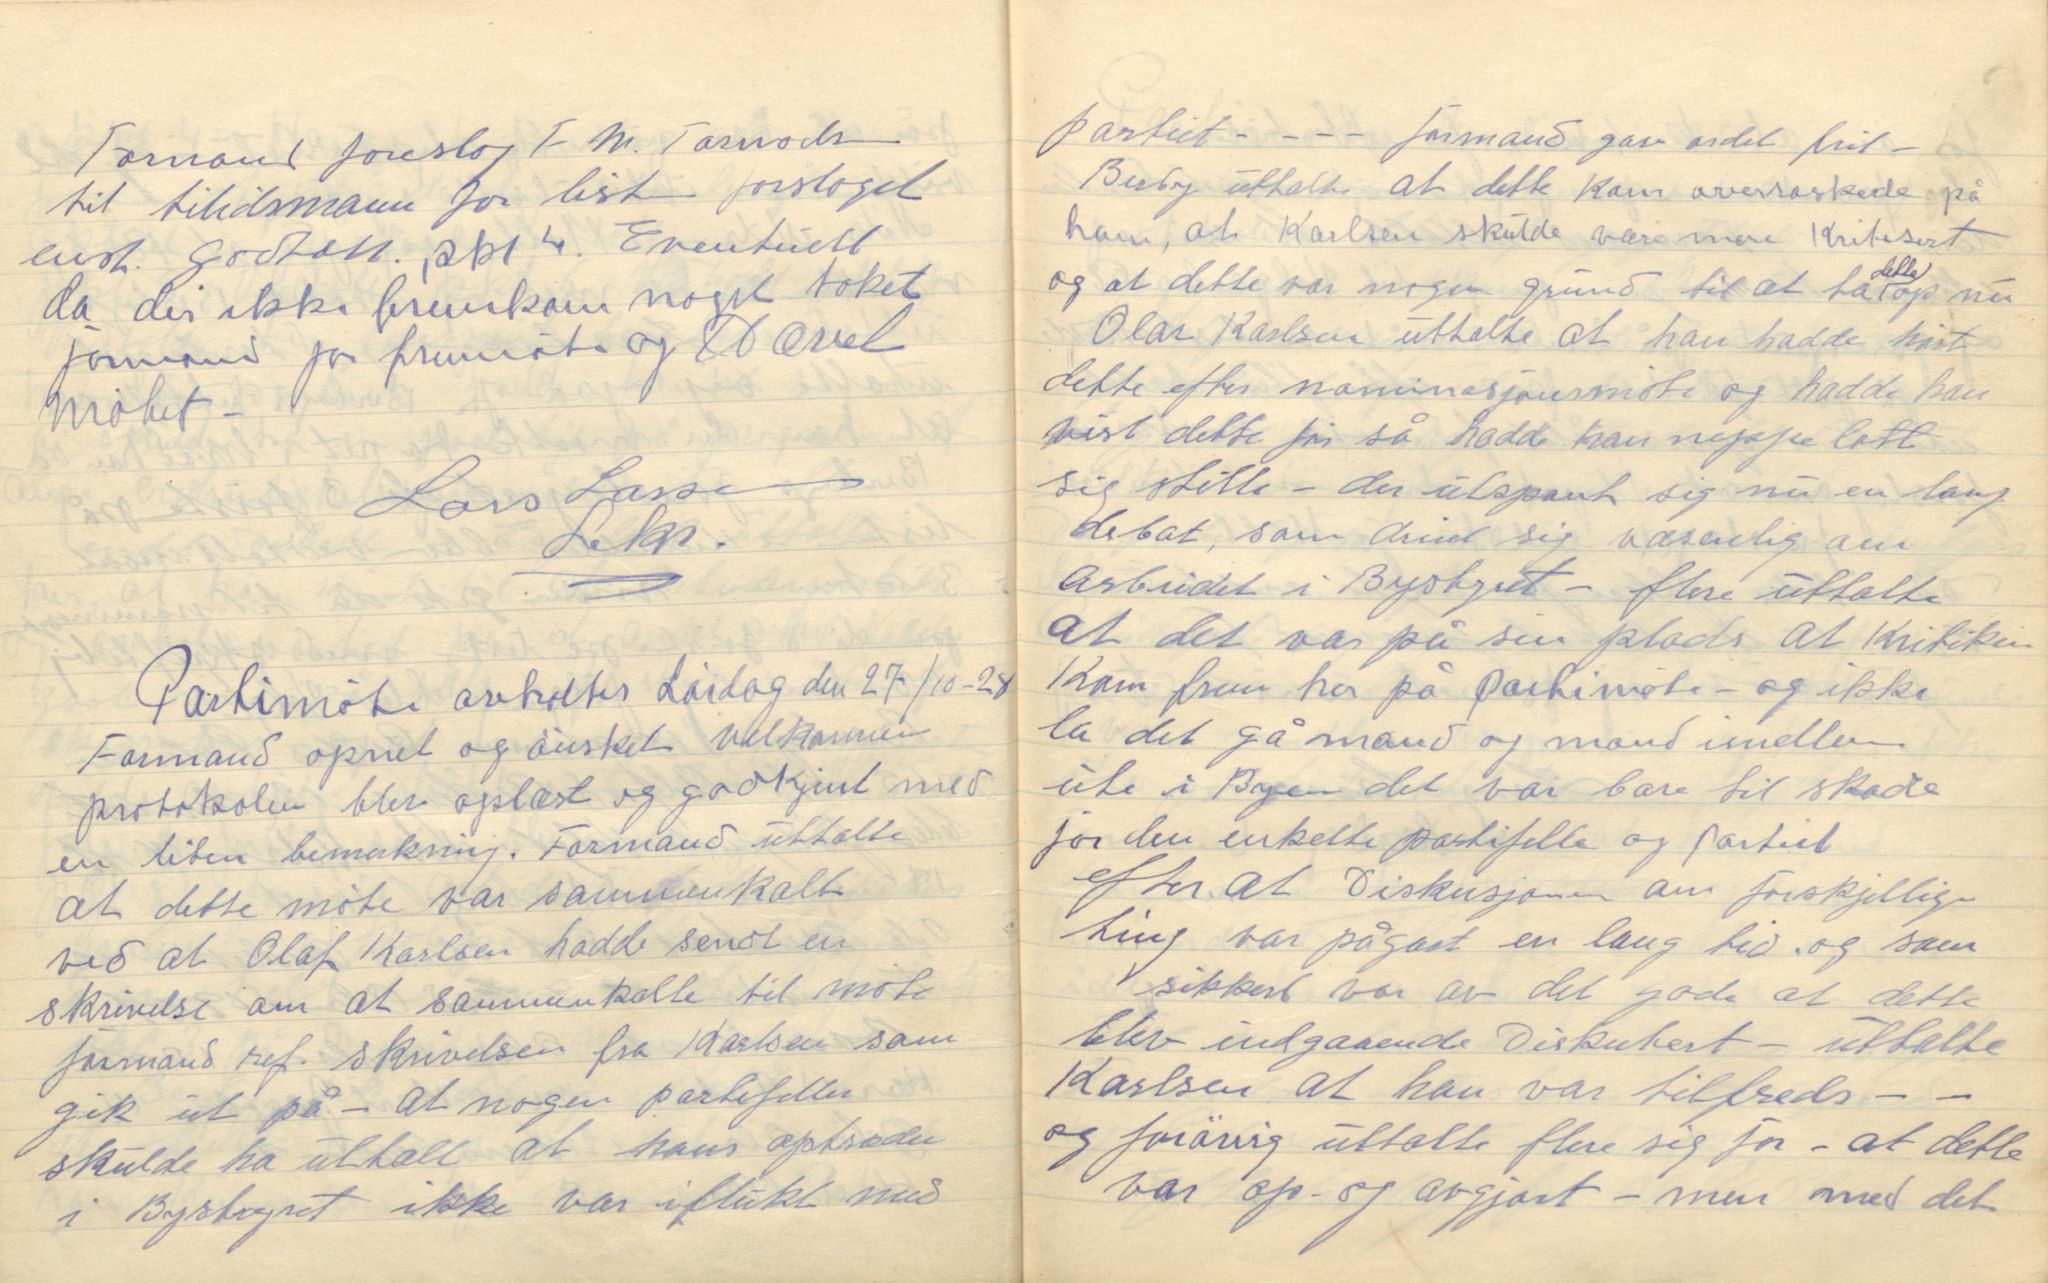 Formand foreslog F. M. Tarnods
til tilidsmann for liste forsloget
enst. godtatt. pkt 4. Eventuelt
da der ikke fremkom noget toket
formand for fremmöte og Hævet
Möhet -
Lars Larsen
Sekr.
Partimöte avholtes Lördag den 27/10-28
Formand opnet og önsket velkommen
protokolen blev oplæst og godkjent med
en liten bemerkning. Formand uttalte
at dette möte var sammenkalt
ved at Olaf Karlsen hadde sendt en
skrivelse om at sammenkalle til möte
formand ref. skrivelsen fra Karlsen som
gik ut på - at nogen partifeller
skulde ha uttalt at hans optræden
i Bystyret ikke var iflukt med
Partiet - - - - formand gav ordet frit -
Berby uttalte at dette kom overraskede på
ham, at Karlsen skulde være mere Kritesert
og at dette var nogen grund til at ta dette op nu
Olav Karlsen uttalte at han hadde hört
dette efter nominasjonsmöte og hadde han
vist dette för så hadde han neppe latt
sig stille - der utspant sig nu en lang
debat, som dreiet sig væsenlig om
Arbeidet i Bystyret - flere uttalte
at det var på sin plads at Kritiken
Kom frem her på Partimöte - og ikke
la det gå mand og mand imellem
ute i Byen det var bare til skade
for den enkelte partifelle og Partiet
efter at Diskusjonen om forskjellige
ting var pågåt en lang tid. og som
sikkert var av det gode at dette
blev indgaaende Diskutert - uttalte
Karlsen at han var tilfreds - -
og forövrig uttalte flere sig for - at dette
var op- og avgjort - men med det